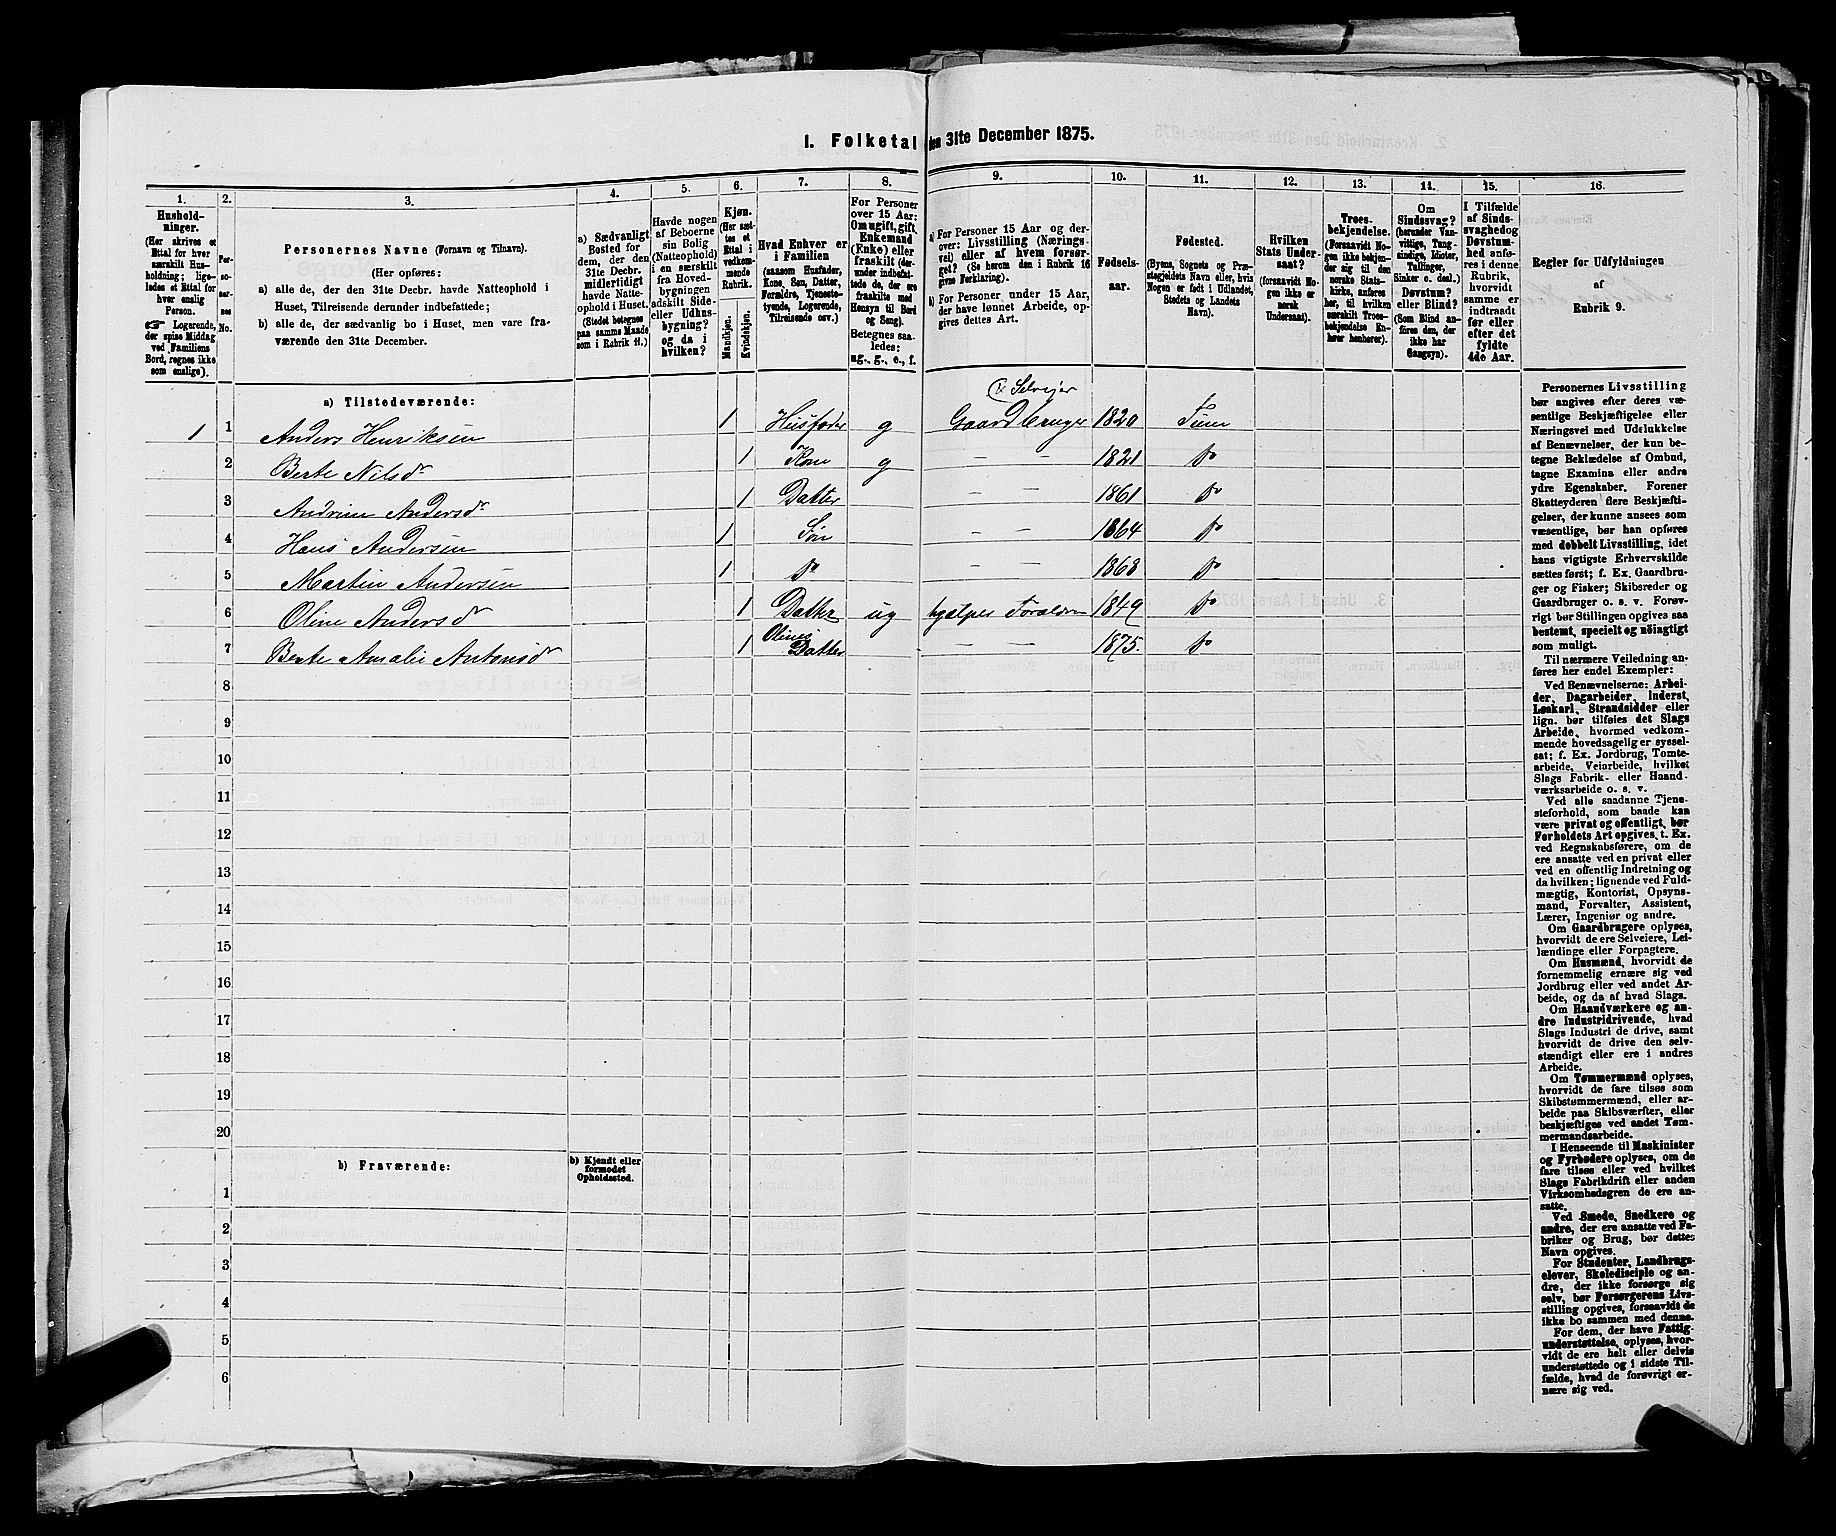 1. Folketal den 31te December 1875.
1.
Hushold-
ninger.
(Her skrives et
Ettal for hver
særskilt Hus-
holdning; lige-
ledes et Ettal for
hver enslig
Person.
☞ Logerende,
der spise Middag
ved Familiens
Bord, regnes ikke
som enslige).
2.
Per-
so-
ner-
nes
No.
3.
Personernes Navne (Fornavn og Tilnavn).
(Her opføres:
a) alle de, der den 31te Decbr. havde Natteophold i
Huset, Tilreisende derunder indbefattede;
b) alle de, der sædvanlig bo i Huset, men vare fra-
værende den 31te December.
4.
a) Sædvanligt
Bosted for
dem, der den
31te Decbr.
midlertidigt
havde Natte-
ophold i Huset.
(Stedet betegnes
paa samme Maade
som i Rubrik 11.)
5.
Havde nogen
af Beboerne
sin Bolig
(Natteophold)
i en særskilt
fra Hoved-
bygningen
adskilt Side-
eller Udhus-
bygning?
og da i
hvilken?
6.
Kjøn.
(Her sæt-
tes et
Ettal i
vedkom-
mende
Rubrik.
Mandkjøn.
Kvindekjøn.
7.
Hvad Enhver er
i Familien
(saasom Husfader,
Kone, Søn, Datter,
Forældre, Tjeneste-
tyende, Logerende,
Tilreisende osv.)
8.
For Personer
over 15 Aar:
Om ugift, gift,
Enkemand
(Enke) eller
fraskilt (der-
under indbefat-
tede de, der ere
fraskilte med
Hensyn til Bord
og Seng).
Betegnes saa-
ledes:
ug., g., e., f.
9.
a) For Personer 15 Aar og der-
over: Livsstilling (Nærings-
vei) eller af hvem forsør-
get? (Se herom den i Rubrik 16
givne Forklaring).
b) For Personer under 15 Aar,
der have lønnet Arbeide, op-
gives dettes Art.
10.
Fødsels-
aar.
11.
Fødested.
(Byens, Sognets og Præ-
stegjeldets Navn eller, hvis
Nogen er født i Udlandet,
Stedets og Landets
Navn).
12.
Hvilken
Stats Under-
saat?
(forsaavidt No-
gen ikke er
norsk
Undersaat).
13.
Troes-
bekjendelse.
(Forsaavidt No-
gen ikke bekjen-
der sig til den
norske Stats-
kirke, anføres
her, til hvilken
særskilt Troes-
bekjendelse En-
hver henhører).
14.
Om
Sindssvag?
(herunder Van-
vittige, Tung-
sindige, Idioter,
Tullinger,
Sinker o. desl.)
Døvstum?
eller Blind? (an-
føres den, der
ikke har
Gangsyn).
15.
I Tilfælde
af Sinds-
svaghed og
Døvstum-
hed anfø-
res i denne
Rubrik,
hvorvidt
samme er
indtraadt
før eller
efter det
fyldte
4de Aar.
16.
Regler for Udfyldningen
af
Rubrik 9.
a) Tilstedeværende:
Selveier
1 1 Anders Henriksen 1 Husfader g Gaardbruger 1820 Tune
2 Berte Nilsdr 1 Kone g — — 1821 Do
3 Andrine Andersdr 1 Datter — — 1861 Do
4 Hans Andersen 1 Søn — 1864 Do
5 Martin Andersen 1 Do — 1868 Do
6 Oline Andersdr 1 Datter ug hjælper Forældrene 1849 Do
7 Berte Amalie Antonsdr 1 Olines Datter — — 1875. Do
8
9
10
11
12
13
14
15
16
17
18
19
20
b) Fraværende:
b) Kjendt eller
formodet
Opholdssted.
1
2
3
4
5
6
Personernes Livsstilling
bør angives efter deres væ-
sentlige Beskjæftigelse eller
Næringsvei med Udelukkelse
af Benævnelser, der kun be-
tegne Beklædelse af Ombud,
tagne Examina eller andre
ydre Egenskaber. Forener
Skatteyderen flere Beskjæfti-
gelser, der kunne ansees som
væsentlige, bør han opføres
med dobbelt Livsstilling, idet
hans vigtigste Erhvervskilde
sættes først; f. Ex. Gaardbru-
ger og Fisker; Skibsreder og
Gaardbruger o. s. v. Forøv-
rigt bør Stillingen opgives saa
bestemt, specielt og nøiagtigt
som muligt.
Til nærmere Veiledning an-
føres her endel Exempler:
Ved Benævnelserne: Arbei-
der, Dagarbeider, Inderst,
Løskarl, Strandsidder eller
lign. bør tilføies det Slags
Arbeide, hvormed vedkom-
mende hovedsagelig er syssel-
sat; f. Ex. Jordbrug, Tomte-
arbeide, Veiarbeide, hvilket
Slags Fabrik- eller Haand-
værksarbeide o. s. v.
Ved alle saadanne Tjene-
steforhold, som baade kan
være privat og offentligt, bør
Forholdets Art opgives, t. Ex.
ved Regnskabsførere, om de
ere ansatte ved en privat eller
ved en offentlig Indretning og
da hvilken; lignende ved Fuld-
mægtig, Kontorist, Opsyns-
mand, Forvalter, Assistent,
Lærer, Ingeniør og andre.
Om Gaardbrugere oplyses,
hvorvidt de ere Selveiere, Lei-
lændinge eller Forpagtere.
Om Husmænd, hvorvidt de
fornemmelig ernære sig ved
Jordbrug eller ved andet Ar-
beide, og da af hvad Slags.
Om Haandværkere og an-
dre Industridrivende, hvad
Slags Industri de drive, samt
hvorvidt de drive den selv-
stændigt eller ere i andres
Arbeide.
Om Tømmermænd oplyses,
hvorvidt de fare tilsøs som
Skibstømmermænd, eller ar-
beide paa Skibsværfter, eller
beskjæftiges ved andet Tøm-
mermandsarbeide.
I Henseende til Maskinister
og Fyrbødere oplyses, om de
fare tilsøs eller ved hvilket
Slags Fabrikdrift eller anden
Virksomhedsgren de ere an-
satte.
Ved Smede, Snedkere og
andre, der ere ansatte ved Fa-
briker og Brug, bør dettes
Navn opgives.
For Studenter, Landbrugs-
elever, Skoledisciple og an-
dre, der ikke forsørge sig
selv, bør Forsørgerens Livs-
stilling opgives, forsaavidt de
ikke bo sammen med denne.
For dem, der have Fattig-
understøttelse, oplyses, hvor-
vidt de ere helt eller delvis
understøttede og i sidste Til-
fælde, hvad de forøvrigt er-
nære sig ved.